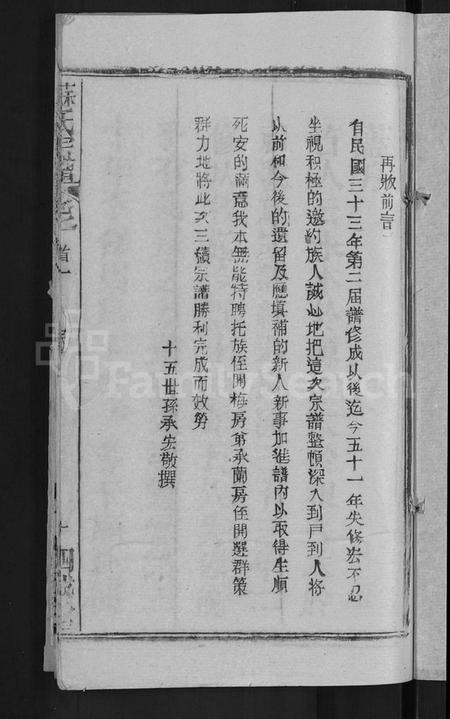 再敘前言
自民國三十三年第二屆譜修成以後迄今五十一年失修宏不忍
坐視积極的邀約族人誠心地把這次宗譜整頓深入到戸到人将
以前和今後的遺留及應填補的新人新事加進譜內以取得生順
死安的 我本無能特聘托族侄開梅房弟承蘭房侄開選群策
群力地將此次三續宗譜勝利完成而效勞
十五世孫承宏敬撰
蘇氏宗譜 卷 首
FamilySearch